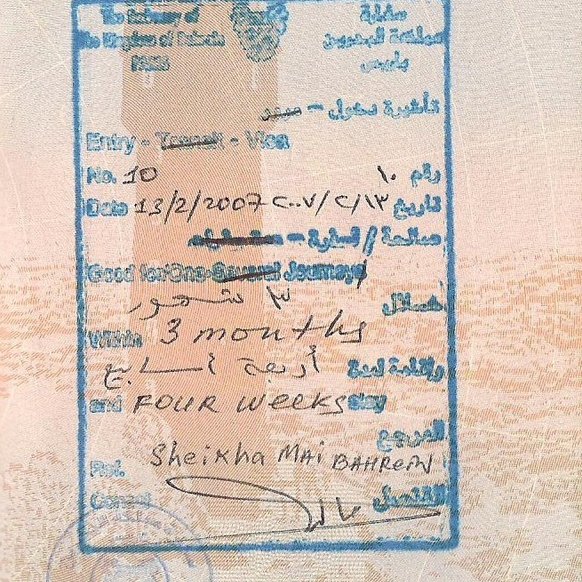 The Embassy of
the Kingdom of Bahrain
PARIS
سفارة
مملكة البحرين
باريس
تأشيرة دخول - مرور
Entry - Transit - Visa
No. 10
رقم ١٠
Date 13/2/2007
تاريخ ١٣/٢/٢٠٠٧
صالحة / لسفرة -
Good for One-Several Journeys
خلال ٣ شهور
Within 3 months
وإقامة لمدة أربعة أسابيع
and FOUR WEEKS stay
المرجع
Ref. Sheikha MAI BAHREIN
Consul
القنصل